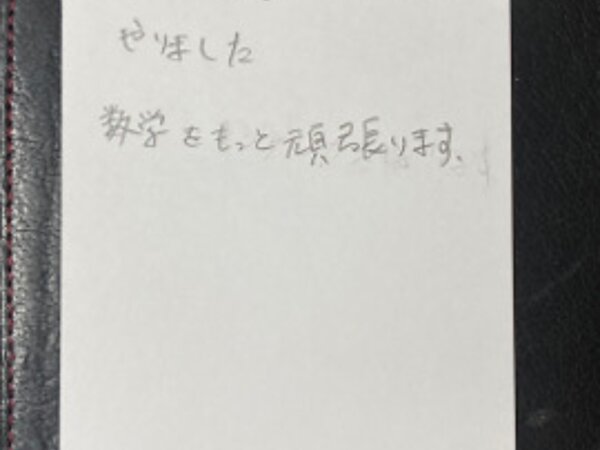 やりました
数学をもっと頑張ります、